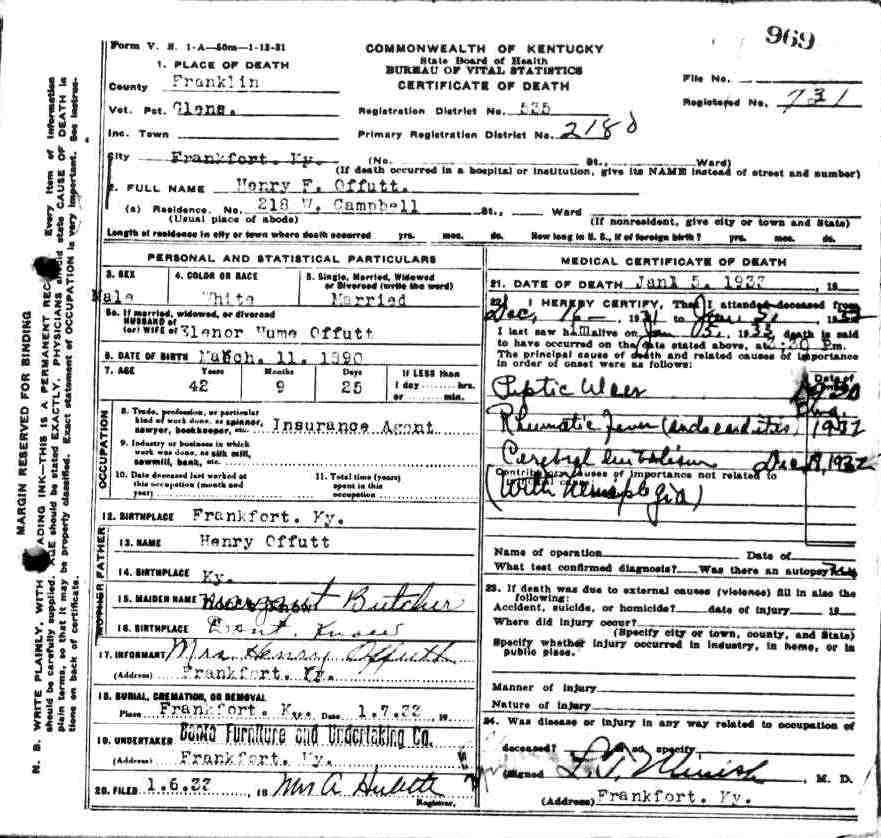 969
Form V. S. 1-A—50m—1-13-31
COMMONWEALTH OF KENTUCKY
State Board of Health
BUREAU OF VITAL STATISTICS
CERTIFICATE OF DEATH
1. PLACE OF DEATH
County Franklin
File No.
Vot. Pct. Glens.
Registration District No. 535
Registered No. 731
Inc. Town
Primary Registration District No. 2180
City Frankfort. Ky. (No. St., Ward)
(If death occurred in a hospital or institution, give its NAME instead of street and number)
2. FULL NAME Henry F. Offutt.
(a) Residence. No. 218 W. Campbell St., Ward
(Usual place of abode) (If nonresident, give city or town and State)
Length of residence in city or town where death occurred yrs. mos. ds. How long in U. S., if of foreign birth? yrs. mos. ds.
PERSONAL AND STATISTICAL PARTICULARS
3. SEX
Male
4. COLOR OR RACE
White
5. Single, Married, Widowed or Divorced (write the word)
Married
5a. If married, widowed, or divorced
HUSBAND of
(or) WIFE of Elenor Hume Offutt
6. DATE OF BIRTH March. 11. 1890
7. AGE Years Months Days If LESS than
42 9 25 1 day hrs.
or min.
OCCUPATION
8. Trade, profession, or particular
kind of work done, as spinner,
sawyer, bookkeeper, etc. Insurance Agent
9. Industry or business in which
work was done, as silk mill,
sawmill, bank, etc.
10. Date deceased last worked at
this occupation (month and
year)
11. Total time (years)
spent in this
occupation
12. BIRTHPLACE Frankfort. Ky.
FATHER
13. NAME Henry Offutt
14. BIRTHPLACE Ky.
MOTHER
15. MAIDEN NAME Margaret Butcher
16. BIRTHPLACE Dont. Know
17. INFORMANT Mrs Henry Offutt
(Address) Frankfort. Ky.
18. BURIAL, CREMATION, OR REMOVAL
Place Frankfort. Ky. Date 1.7.33 19
19. UNDERTAKER Furniture and Undertaking Co.
(Address) Frankfort. Ky.
20. FILED 1.6.33 19 Mrs A
Registrar.
MEDICAL CERTIFICATE OF DEATH
21. DATE OF DEATH Jan. 5. 1933 19
22. I HEREBY CERTIFY, That I attended deceased from
Dec, 16 — , 19 to Jan 5, 1933
I last saw him alive on Jan 5, 1933, death is said
to have occurred on the date stated above, at :30 Pm.
The principal cause of death and related causes of importance
in order of onset were as follows:
Date of
Peptic Ulcer
Rheumatic Fever (endocarditis) 1932
Cerebral Embolism Dec 1932
Contributory causes of importance not related to
(With Hemiplegia)
Name of operation Date of
What test confirmed diagnosis? Was there an autopsy?
23. If death was due to external causes (violence) fill in also the
following:
Accident, suicide, or homicide? date of injury 19
Where did injury occur?
(Specify city or town, county, and State)
Specify whether injury occurred in industry, in home, or in
public place.
Manner of injury
Nature of injury
24. Was disease or injury in any way related to occupation of
deceased? specify
(Signed) L. T. Minish M. D.
(Address) Frankfort. Ky.
MARGIN RESERVED FOR BINDING
N. B. WRITE PLAINLY, WITH ADING INK—THIS IS A PERMANENT REC Every item of information
should be carefully supplied. AGE should be stated EXACTLY. PHYSICIANS should state CAUSE OF DEATH in
plain terms, so that it may be properly classified. Exact statement of OCCUPATION is very important. See instruc-
tions on back of certificate.